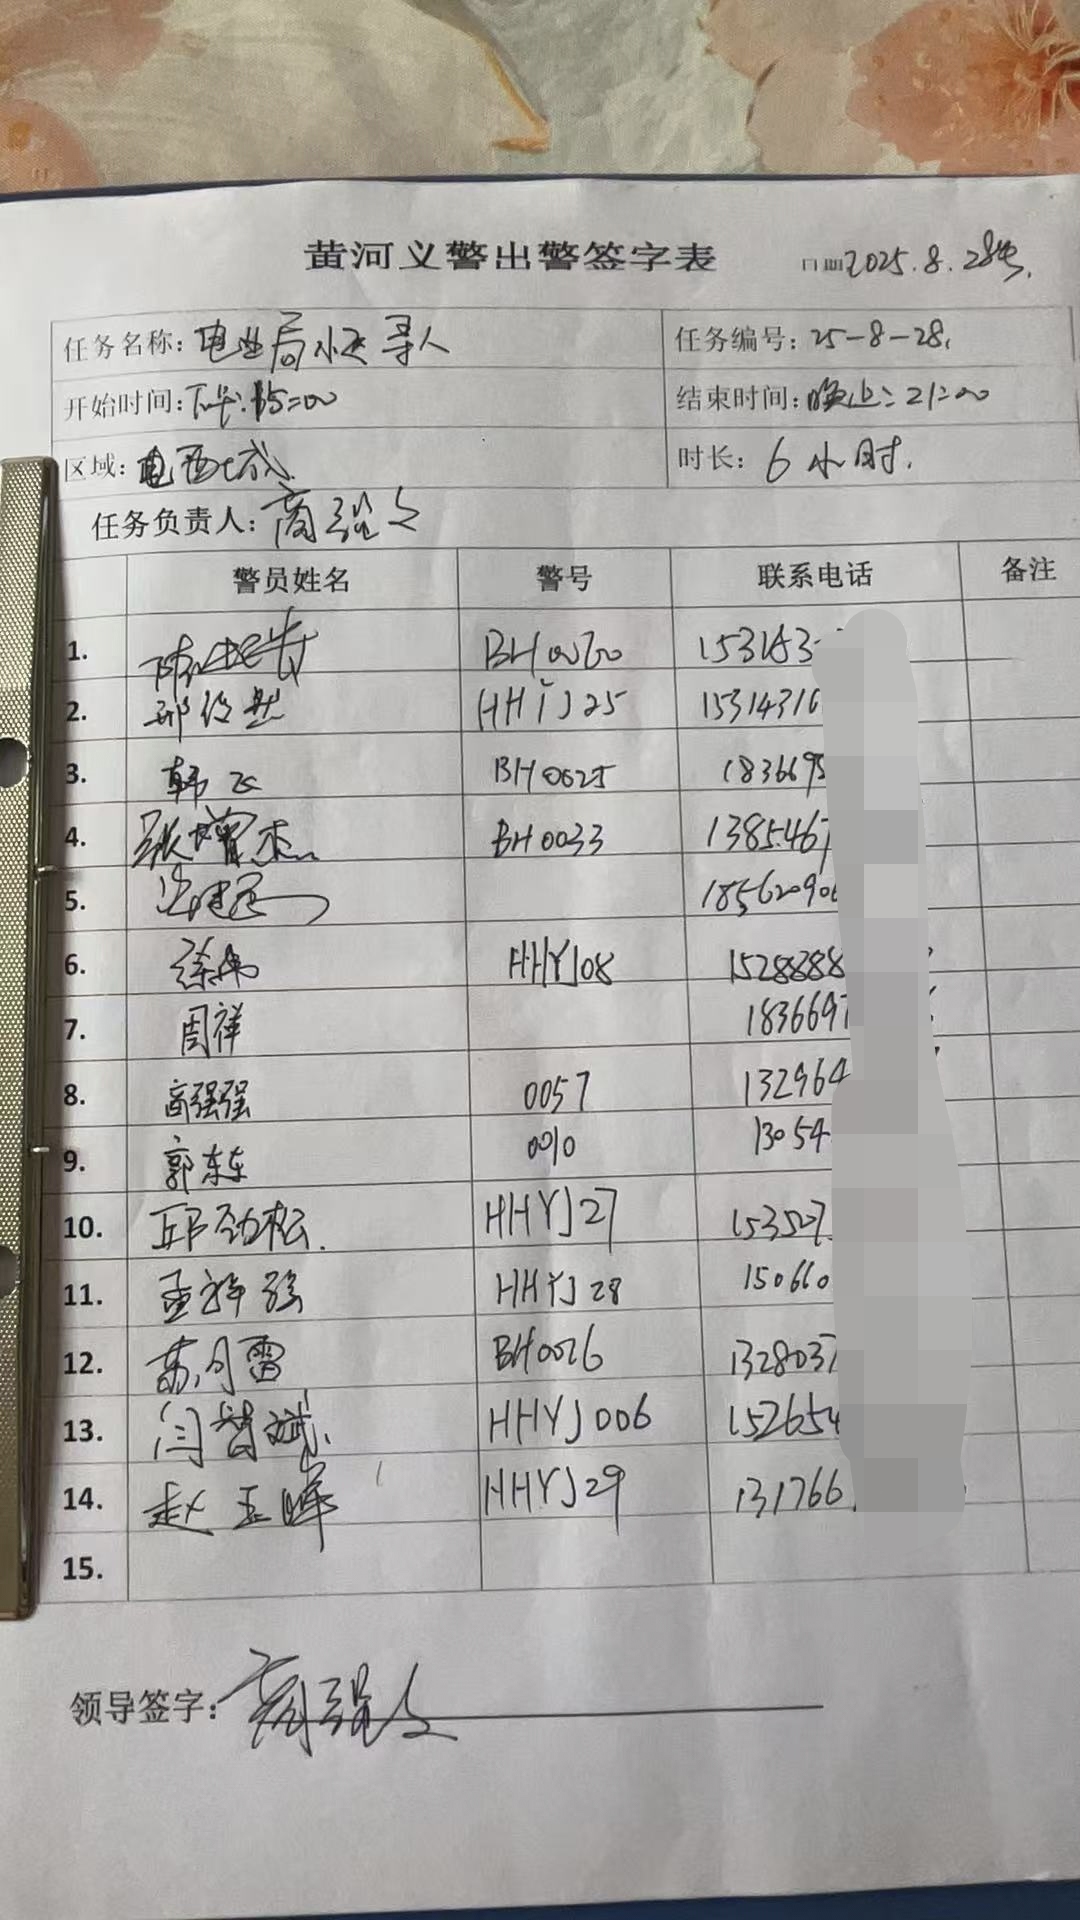 黄河义警出警签字表 日期2025.8.28号.
任务名称: 电业局小区寻人 任务编号: 25-8-28.
开始时间: 下午:15:00 结束时间: 晚上:21:00
区域: 西城 时长: 6小时.
任务负责人: 高强
警员姓名 警号 联系电话 备注
1. 陈 153153
2. 邢俊 HHYJ25 15314316
3. 韩飞 BH0025 1836695
4. 张增杰 BH0033 1385467
5. 185620906
6. 徐伟 HHYJ08 15288888
7. 周祥 1836697
8. 高强强 0057 132964
9. 郭东东 0010 13054
10. 邱劲松. HHYJ27 153527
11. 孟祥强 HHYJ28 150660
12. 苏月雷 BH0026 1328037
13. 闫智斌. HHYJ006 152654
14. 赵玉晖 HHYJ29 131766
15.
领导签字: 高强